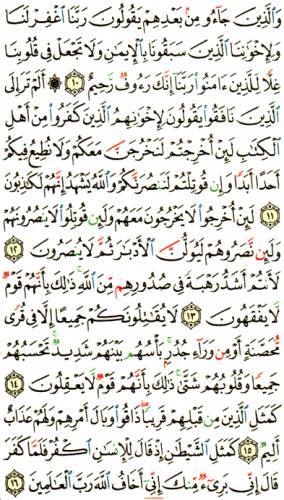 وَٱلَّذِينَ جَآءُو مِنۢ بَعْدِهِمْ يَقُولُونَ رَبَّنَا ٱغْفِرْ لَنَا
وَلِإِخْوَٰنِنَا ٱلَّذِينَ سَبَقُونَا بِٱلْإِيمَٰنِ وَلَا تَجْعَلْ فِى قُلُوبِنَا
غِلًّا لِّلَّذِينَ ءَامَنُوا۟ رَبَّنَآ إِنَّكَ رَءُوفٌ رَّحِيمٌ ١٠ ۞ أَلَمْ تَرَ إِلَى
ٱلَّذِينَ نَافَقُوا۟ يَقُولُونَ لِإِخْوَٰنِهِمُ ٱلَّذِينَ كَفَرُوا۟ مِنْ أَهْلِ
ٱلْكِتَٰبِ لَئِنْ أُخْرِجْتُمْ لَنَخْرُجَنَّ مَعَكُمْ وَلَا نُطِيعُ فِيكُمْ
أَحَدًا أَبَدًا وَإِن قُوتِلْتُمْ لَنَنصُرَنَّكُمْ وَٱللَّهُ يَشْهَدُ إِنَّهُمْ لَكَٰذِبُونَ
١١ لَئِنْ أُخْرِجُوا۟ لَا يَخْرُجُونَ مَعَهُمْ وَلَئِن قُوتِلُوا۟ لَا يَنصُرُونَهُمْ
وَلَئِن نَّصَرُوهُمْ لَيُوَلُّنَّ ٱلْأَدْبَٰرَ ثُمَّ لَا يُنصَرُونَ ١٢
لَأَنتُمْ أَشَدُّ رَهْبَةً فِى صُدُورِهِم مِّنَ ٱللَّهِ ذَٰلِكَ بِأَنَّهُمْ قَوْمٌ
لَّا يَفْقَهُونَ ١٣ لَا يُقَٰتِلُونَكُمْ جَمِيعًا إِلَّا فِى قُرًى
مُّحَصَّنَةٍ أَوْ مِن وَرَآءِ جُدُرٍۭ بَأْسُهُم بَيْنَهُمْ شَدِيدٌ تَحْسَبُهُمْ
جَمِيعًا وَقُلُوبُهُمْ شَتَّىٰ ذَٰلِكَ بِأَنَّهُمْ قَوْمٌ لَّا يَعْقِلُونَ ١٤
كَمَثَلِ ٱلَّذِينَ مِن قَبْلِهِمْ قَرِيبًا ذَاقُوا۟ وَبَالَ أَمْرِهِمْ وَلَهُمْ عَذَابٌ
أَلِيمٌ ١٥ كَمَثَلِ ٱلشَّيْطَٰنِ إِذْ قَالَ لِلْإِنسَٰنِ ٱكْفُرْ فَلَمَّا كَفَرَ
قَالَ إِنِّى بَرِىٓءٌ مِّنكَ إِنِّىٓ أَخَافُ ٱللَّهَ رَبَّ ٱلْعَٰلَمِينَ ١٦